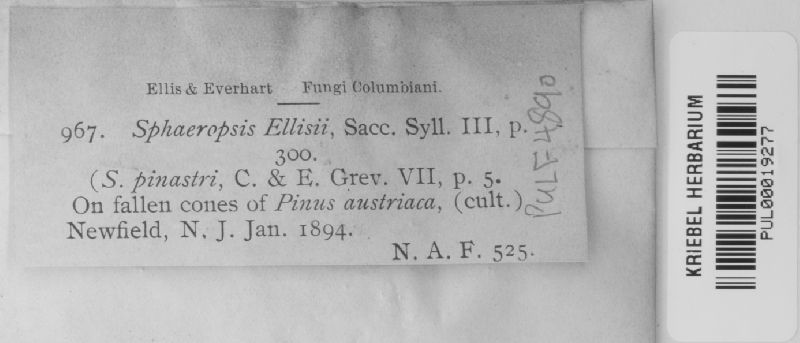 Ellis & Everhart Fungi Columbiani.
967. Sphaeropsis Ellisii, Sacc. Syll. III, p.
300.
(S. pinastri, C. & E. Grev. VII, p. 5.
On fallen cones of Pinus austriaca, (cult.)
Newfield, N. J. Jan. 1894.
N. A. F. 525.
PULF4890
KRIEBEL HERBARIUM
PUL00019277